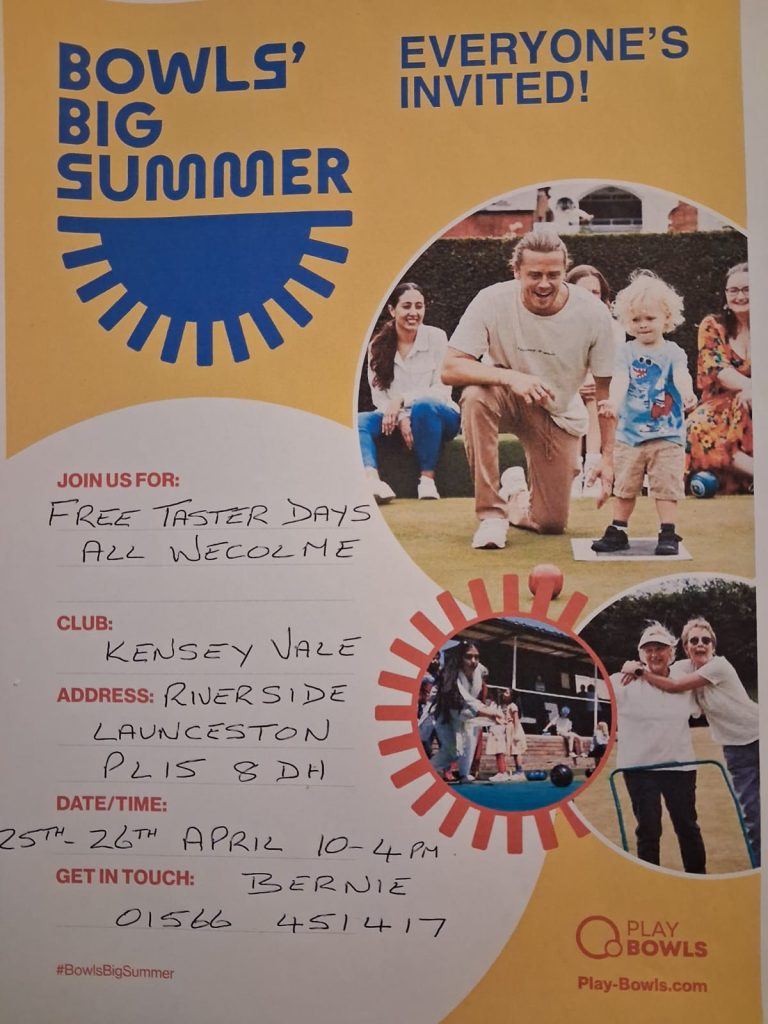 BOWLS'
BIG
SUMMER
EVERYONE'S
INVITED!
JOIN US FOR:
FREE TASTER DAYS
ALL WECOLME
CLUB:
KENSEY VALE
ADDRESS: RIVERSIDE
LAUNCESTON
PL15 8DH
DATE/TIME:
25TH - 26TH APRIL 10-4 PM
GET IN TOUCH: BERNIE
01566 451417
#BowlsBigSummer
PLAY
BOWLS
Play-Bowls.com